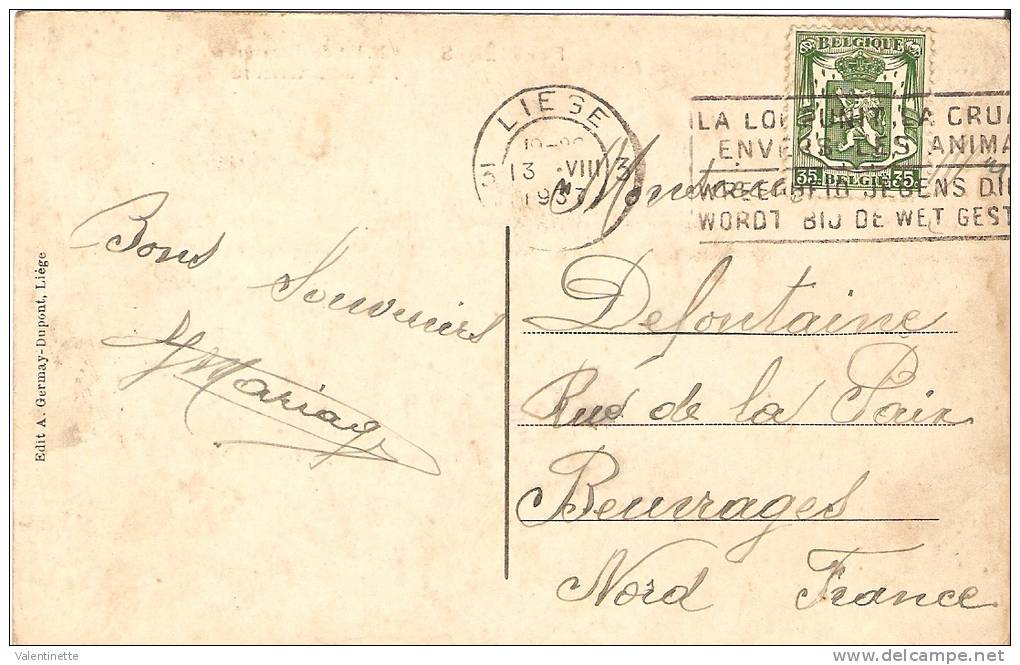 BELGIQUE
35 BELGIE 35
LIEGE
13 VIII
1937
LA LOI PUNIT LA CRUA
ENVERS LES ANIMA
JEGENS DIE
WORDT BIJ DE WET GEST
Bons
Souvenirs
Mariage
Edit A. Germay-Dupont, Liége
Defontaine
Rue de la Paix
Beuvrages
Nord France
Valentinette
www.delcampe.net